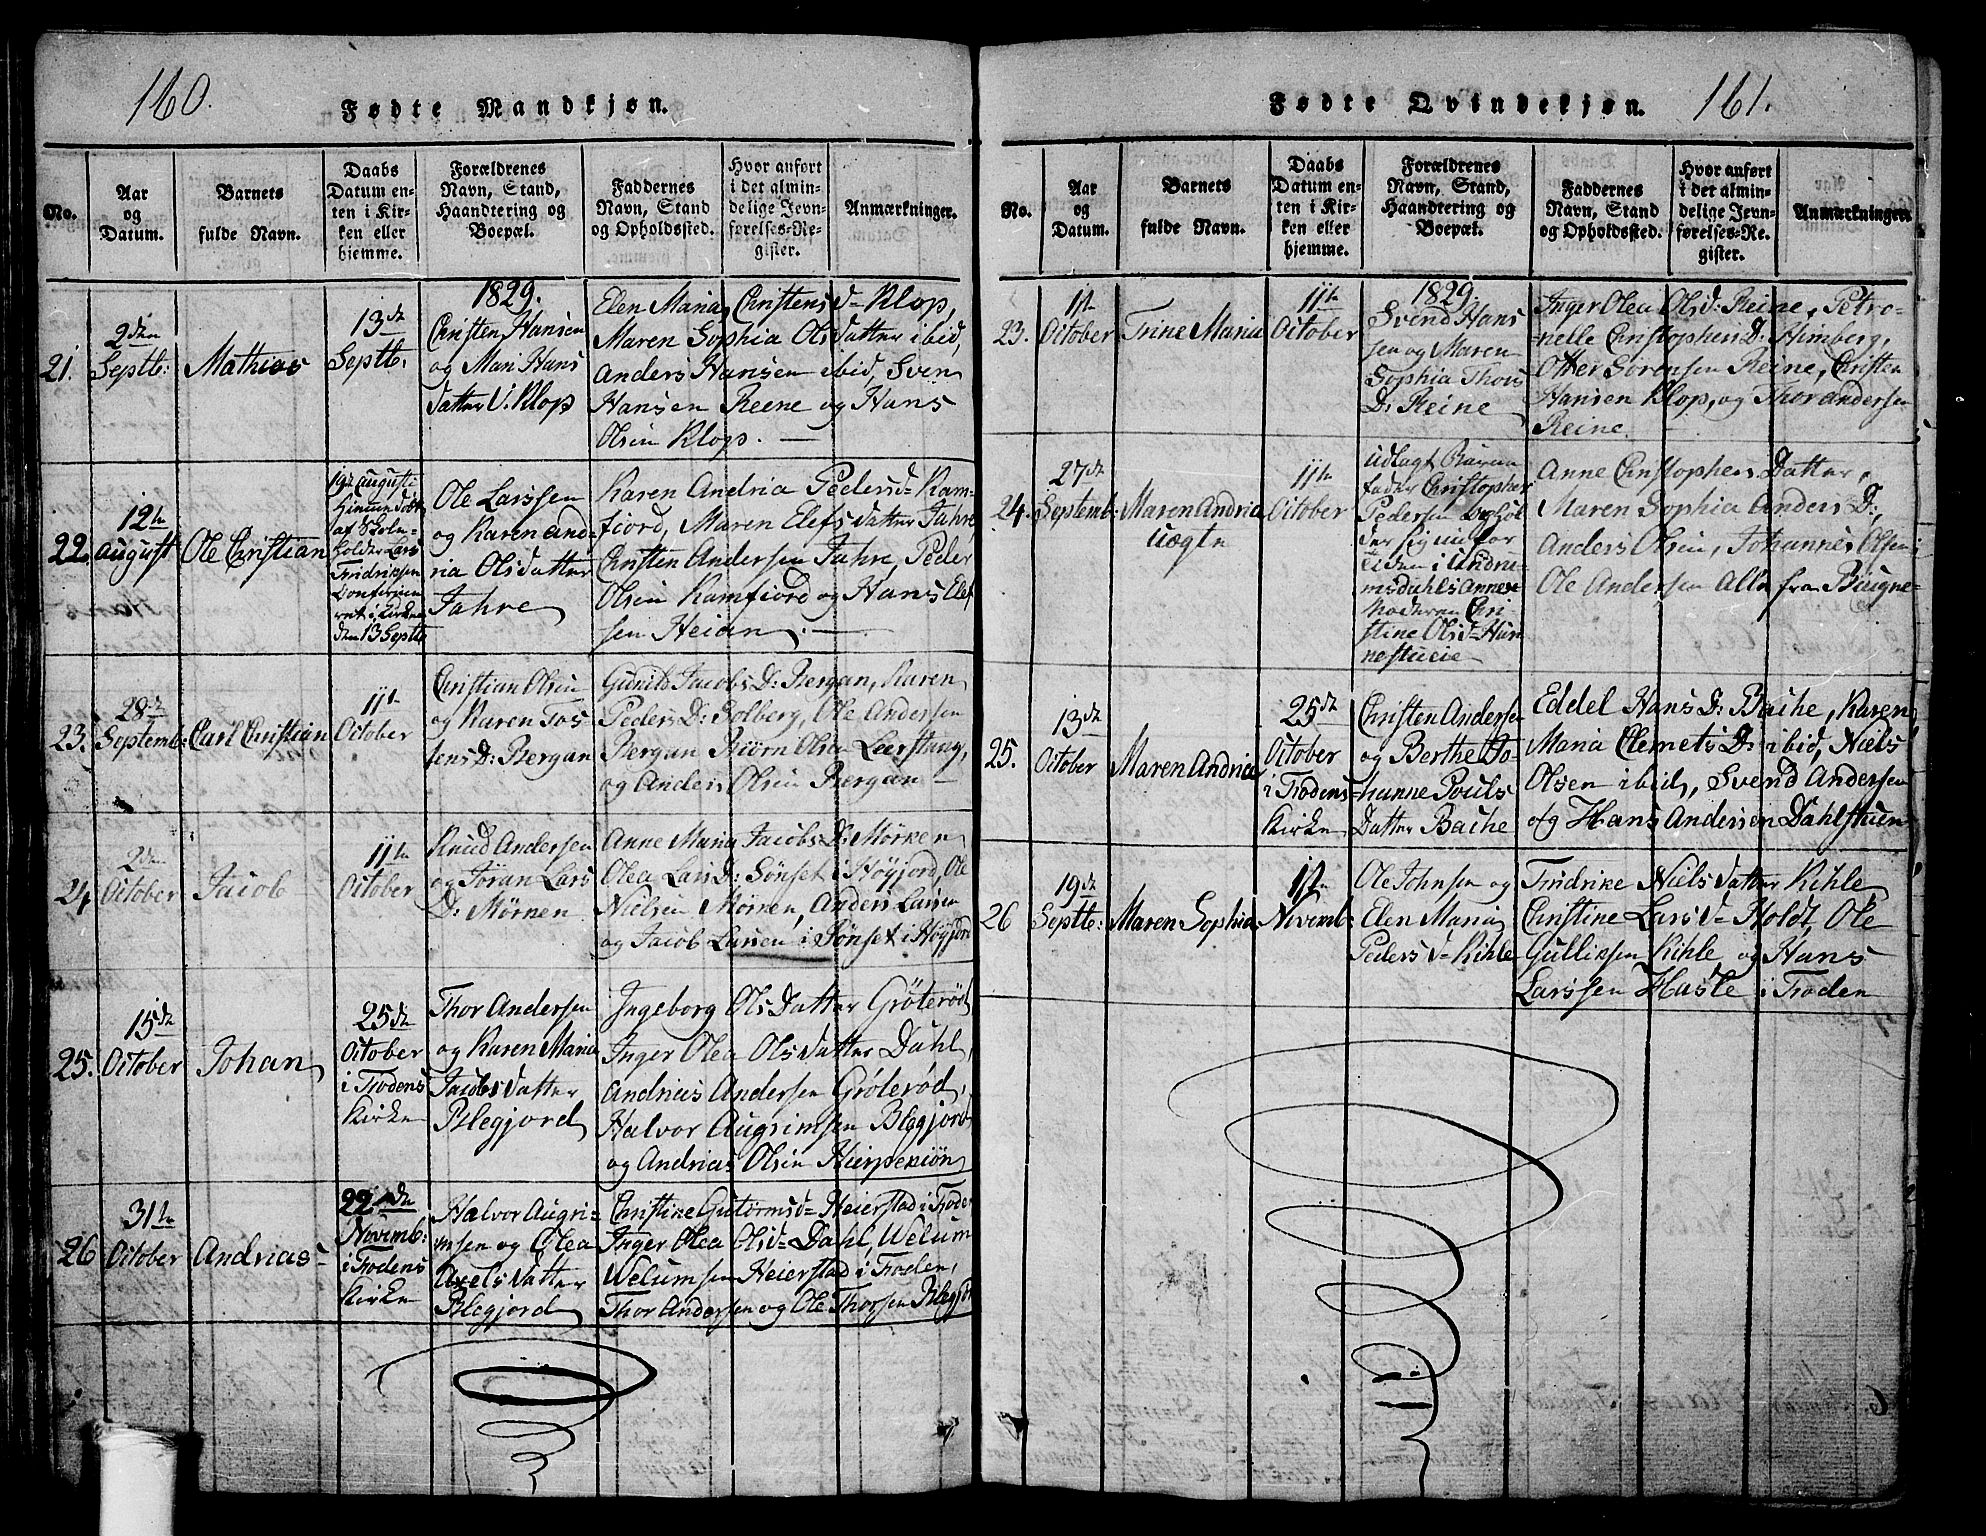 160.
Fødte Mandkjøn.
No.
Aar
og
Datum.
Barnets
fulde Navn.
Daabs
Datum en-
ten i Kir-
ken eller
hjemme.
Forældrenes
Navn, Stand,
Haandtering og
Boepæl.
Faddernes
Navn, Stand
og Opholdssted.
Hvor anført
i det almin-
delige Jevn-
førelses-Re-
gister.
Anmærkninger.
1829.
21.
2den
Septb:
Mathias
13de
Septb:
Christen Hansen
og Mari Hans
datter V. Klop
Elen Maria Christensd= Klop,
Maren Sophia Olsdatter ibid,
Anders Hansen ibid, Sven
Hansen Reene og Hans
Olsen Klop. —
22.
12te
August
Ole Christian
19de Augusti
hiemmedøbt
af Skole-
holder Lars
Fredriksen
Confirmee-
ret i Kirken
den 13 Septb
Ole Larssen
og Karen And-
ria Olsdatter
Jahre
Karen Andria Pedersd= Ram-
fjord, Maren Elefsdatter Jahre,
Christen Andersen Jahre, Peder
Olsen Ramfjord og Hans Elef
sen Heian. —
23.
28de
Septemb:
Carl Christian
11te
October
Christian Olsen
og Karen Tos-
sens D: Bergan
Gunild Jacobs D: Bergan, Karen
Peders D: Solberg, Ole Andersen
Bergan Biørn Olsen Leerstang,
og Anders Olsen Bergan —
24.
2den
October
Jacob
11te
October
Knud Andersen
og Jøran Lars
D: Mørken
Anne Maria Jacobs D: Mørken
Olea Lars D: Sønset i Høyjord, Ole
Nielsen Mørken, Anders Larsen
og Jacob Larsen i Sønset i Høyjord
25.
15de
October
Johan
25de
October
i Fodens
Kirke
Thor Andersen
og Karen Maria
Jacobsdatter
Blegjord
Ingeborg Olsdatter Grøterød
Inger Olea Olsdatter Dahl,
Andrias Andersen Grøterød,
Halvor Augrimsen Blegjord
og Andrias Olsen Hierpekiøn
26
31te
October
Andrias
22de
Novemb:
i Fodens
Kirke
Halvor Augri-
msen og Olea
Axelsdatter
Blegjord
Christine Gutormsd= Heierstad i Foden
Inger Olea Olsd= Dahl, Welum
Welumsen Heierstad i Foden,
Thor Andersen og Ole Thorsen Blegjord
161.
Fødte Qvindekjøn.
No.
Aar
og
Datum.
Barnets
fulde Navn.
Daabs
Datum en-
ten i Kir-
ken eller
hjemme.
Forældrenes
Navn, Stand,
Haandtering og
Boepæl.
Faddernes
Navn, Stand
og Opholdssted.
Hvor anført
i det almin-
delige Jevn-
førelses-Re-
gister.
Anmærkninger.
1829
23.
1ste
October
Trine Maria
11te
October
Svend Hans
sen og Maren
Sophia Thors
D: Reine
Inger Olea Olsd: Reine, Petro-
nelle Christophers D: Himberg,
Otter Sørensen Reine, Christen
Hansen Klop, og Thor Andersen
Reine.
24.
27de
Septemb:
Maren Andria
uægte
11te
October
Udlagt Barne
fader Christopher
Pedersen
i Undru-
msdahls Annex
Moderen Chri-
stine Olsd= Hun-
nestueie
Anne Christophers Datter,
Maren Sophia Anders D:,
Anders Olsen, Johannes Olsen
Ole Andersen Alle fra Baugne-
25.
13de
October
Maren Andria
25de
October
i Fodens
Kirke
Christen Andersen
og Berthe Jo-
hanne Pouls
Datter Bache
Eddel Hans D: Bache, Karen
Maria Clemets D: ibid, Niels
Olsen ibid, Svend Andersen
og Hans Andersen Dahlstuen
26
19de
Septb:
Maren Sophia
1ste
Novemb:
Ole Johnsen og
Elen Maria
Peders d= Kihle
Fredrike Nielsdatter Kihle
Christine Larsd= Holdt, Ole
Gulliksen Kihle og Hans
Larssen Hasle i Foden